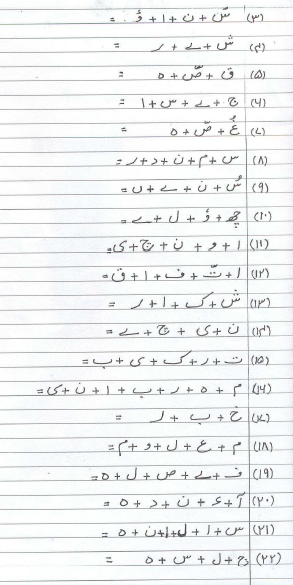 (۳) سّ + ن + ا + ؤ =
(۴) ش + ے + ر =
(۵) ق + صّ + ه =
(۶) ج + ے + س + ا =
(۷) غُ + صّ + ه =
(۸) س + م + ن + د + ر =
(۹) سُ + ن + ے + ں =
(۱۰) چھ + ؤ + ل + ے =
(۱۱) ا + و + ن + چ + ی =
(۱۲) ا + تّ + ف + ا + ق =
(۱۳) ش + ک + ا + ر =
(۱۴) ن + ی + چ + ے =
(۱۵) ت + ر + ک + ی + ب =
(۱۶) م + ه + ر + ب + ا + ن + ی =
(۱۷) خ + ب + ر =
(۱۸) م + ع + ل + و + م =
(۱۹) ف + ے + ص + ل + ه =
(۲۰) آ + ء + ن + د + ه =
(۲۱) س + ا + ل + ا + ن + ه =
(۲۲) ج + ل + س + ه =